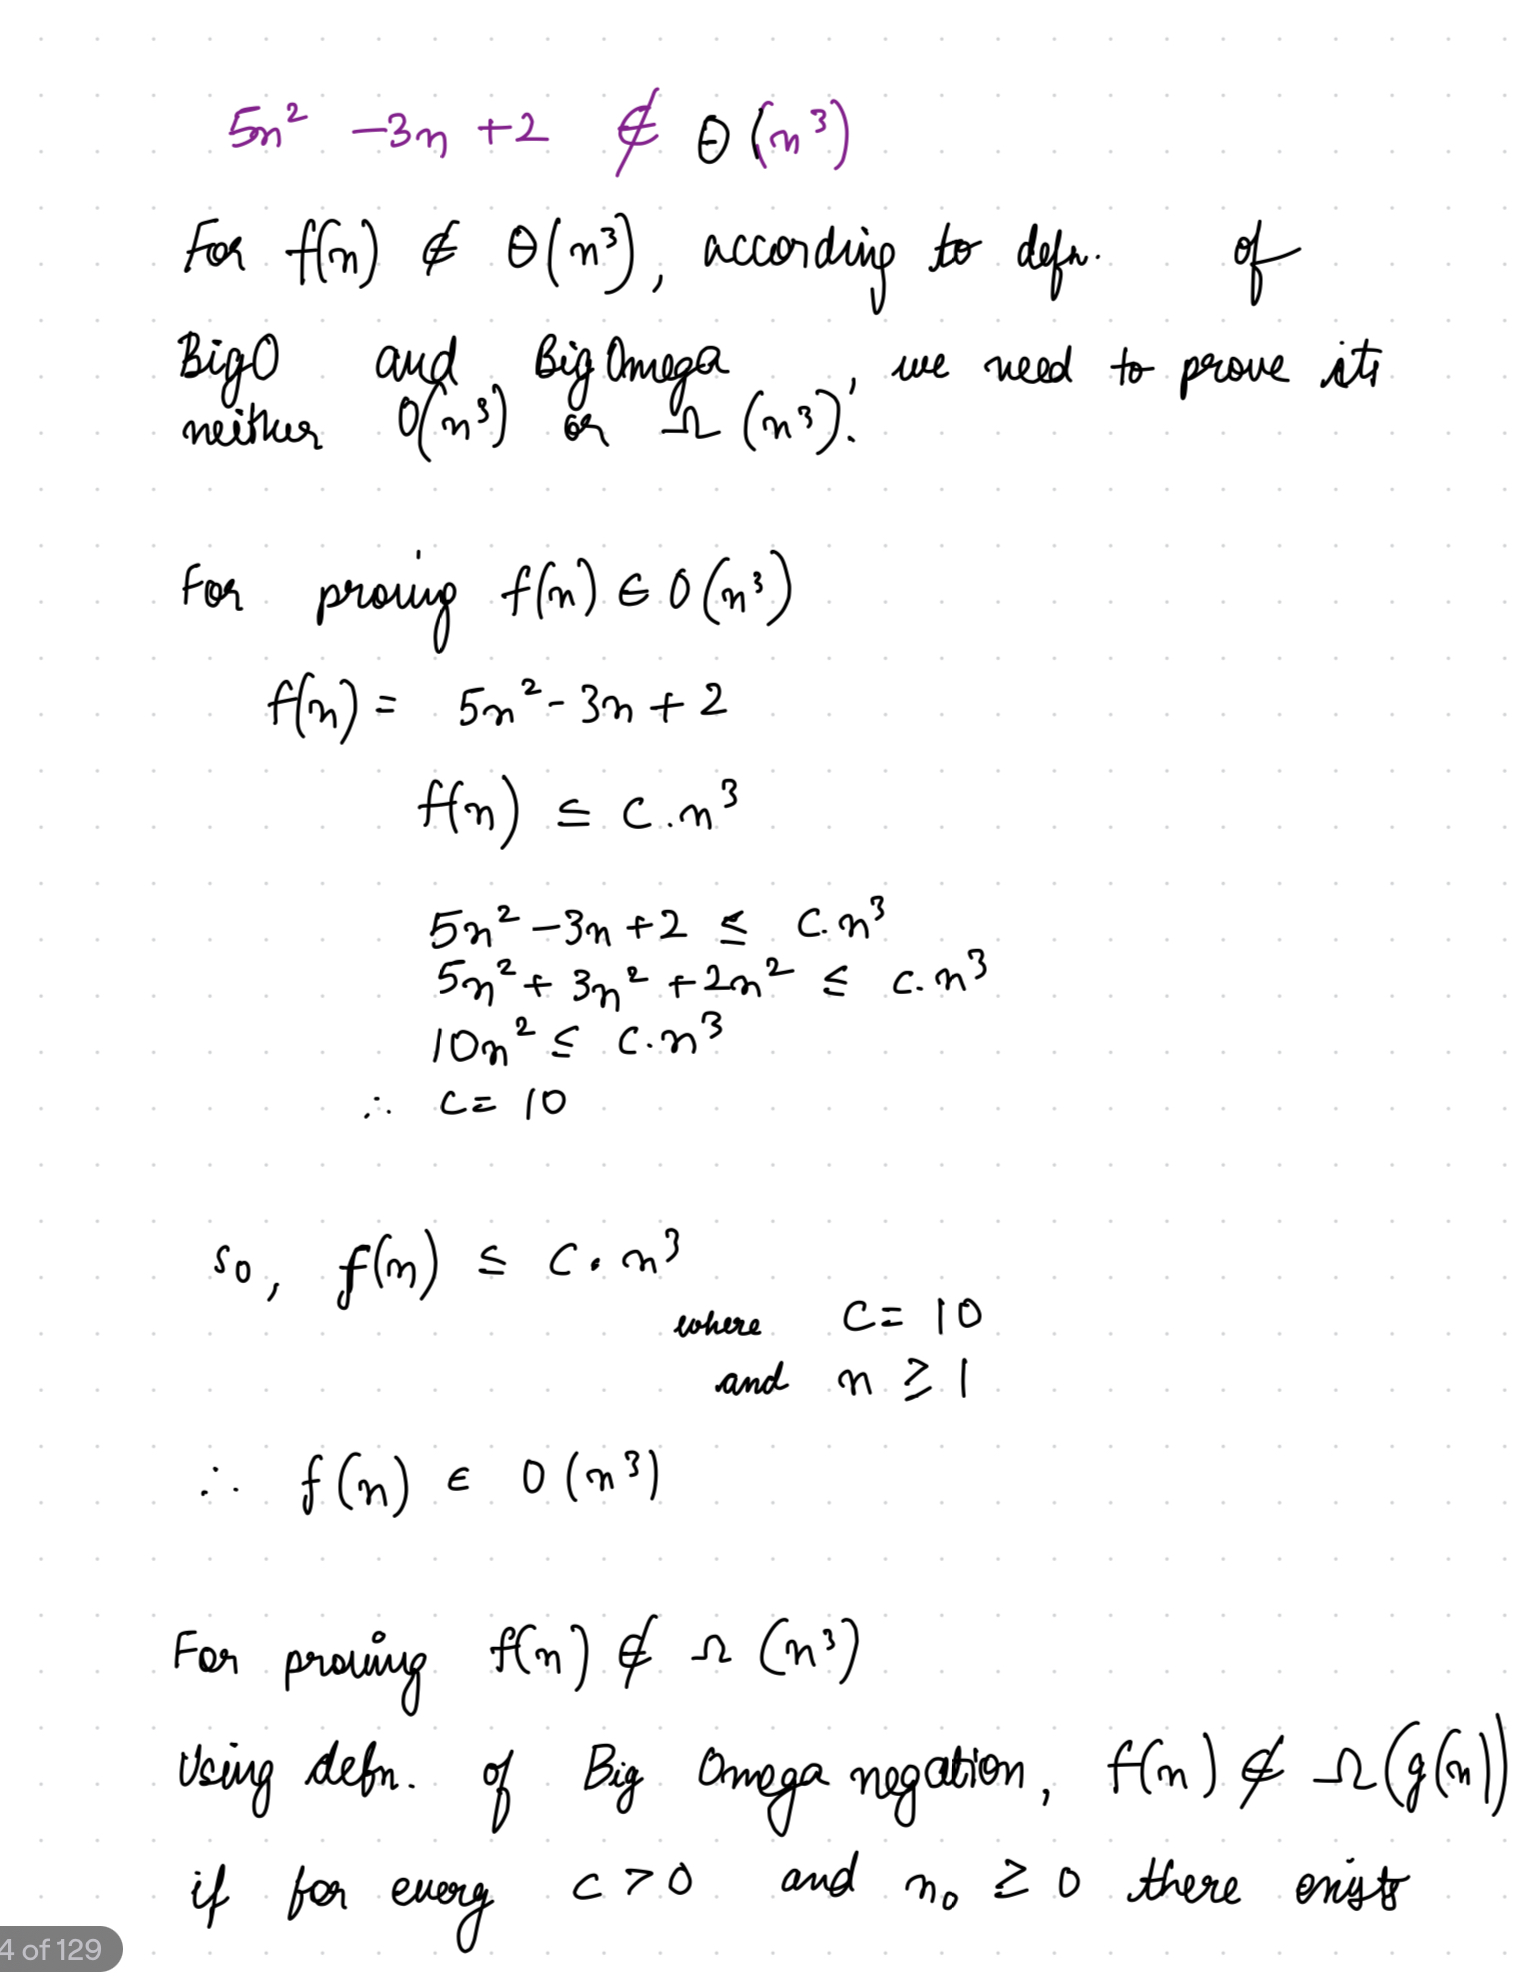 5n² -3n +2 ∉ Θ(n³)
For f(n) ∉ Θ(n³), according to defn. of
BigO and Big Omega, we need to prove its
neither O(n³) or Ω(n³).
For proving f(n) ∈ O(n³)
f(n) = 5n² - 3n + 2
f(n) ≤ C.n³
5n² -3n +2 ≤ C.n³
5n² + 3n² + 2n² ≤ c.n³
10n² ≤ C.n³
∴ C = 10
So, f(n) ≤ C.n³
where C = 10
and n ≥ 1
∴ f(n) ∈ O(n³)
For proving f(n) ∉ Ω(n³)
Using defn. of Big Omega negation, f(n) ∉ Ω(g(n))
if for every c > 0 and n₀ ≥ 0 there exists
4 of 129